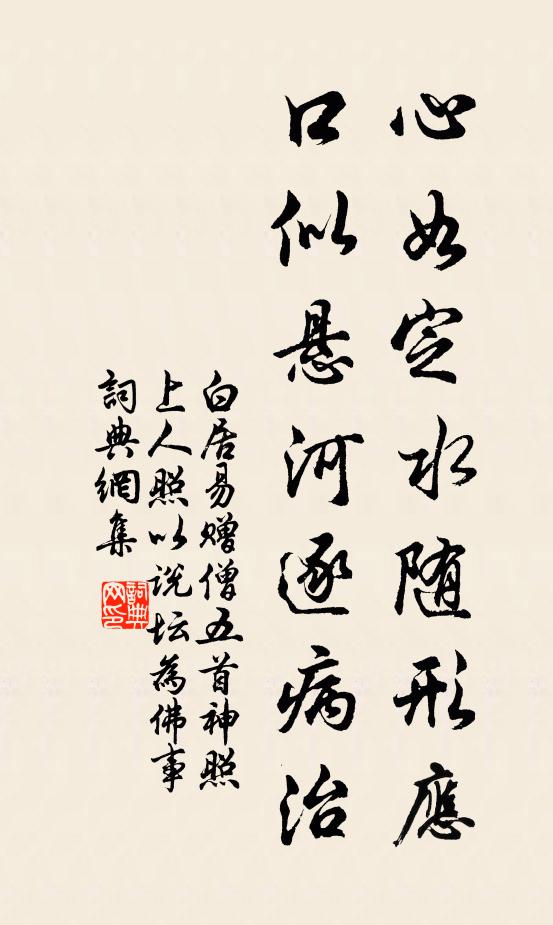 心如定水随形應
口似悬河逐病治
白居易赠僧五首神照
上人照以说坛為佛事
詞典網集
詞典網印